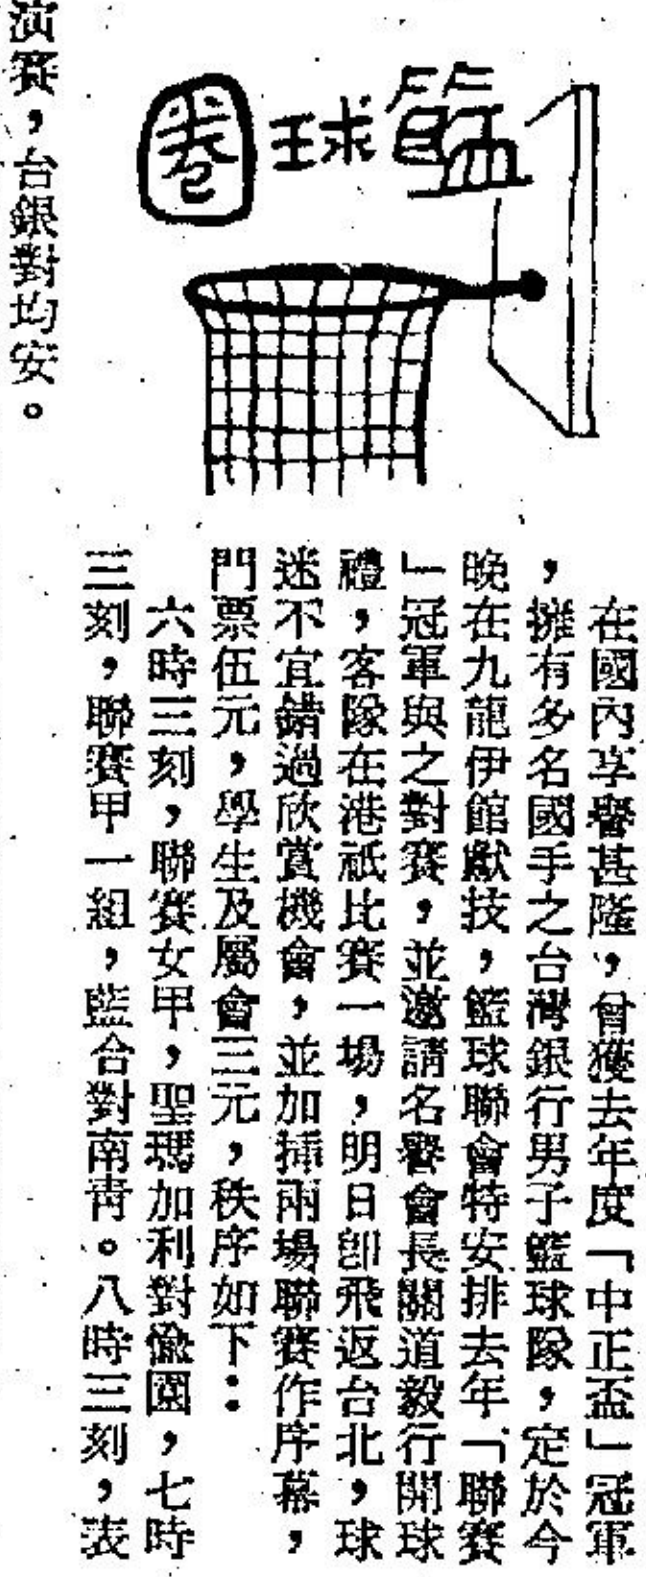 籃球圈
在國內享譽甚隆，曾獲去年度「中正盃」冠軍
，擁有多名國手之台灣銀行男子籃球隊，定於今
晚在九龍伊館獻技，籃球聯會特安排去年「聯賽
」冠軍與之對賽，並邀請名譽會長關道毅行開球
禮，客隊在港祇比賽一場，明日卽飛返台北，球
迷不宜錯過欣賞機會，並加插兩場聯賽作序幕，
門票伍元，學生及屬會三元，秩序如下：
六時三刻，聯賽女甲，聖瑪加利對儉園，七時
三刻，聯賽甲一組，藍合對南青。八時三刻，表
演賽，台銀對均安。